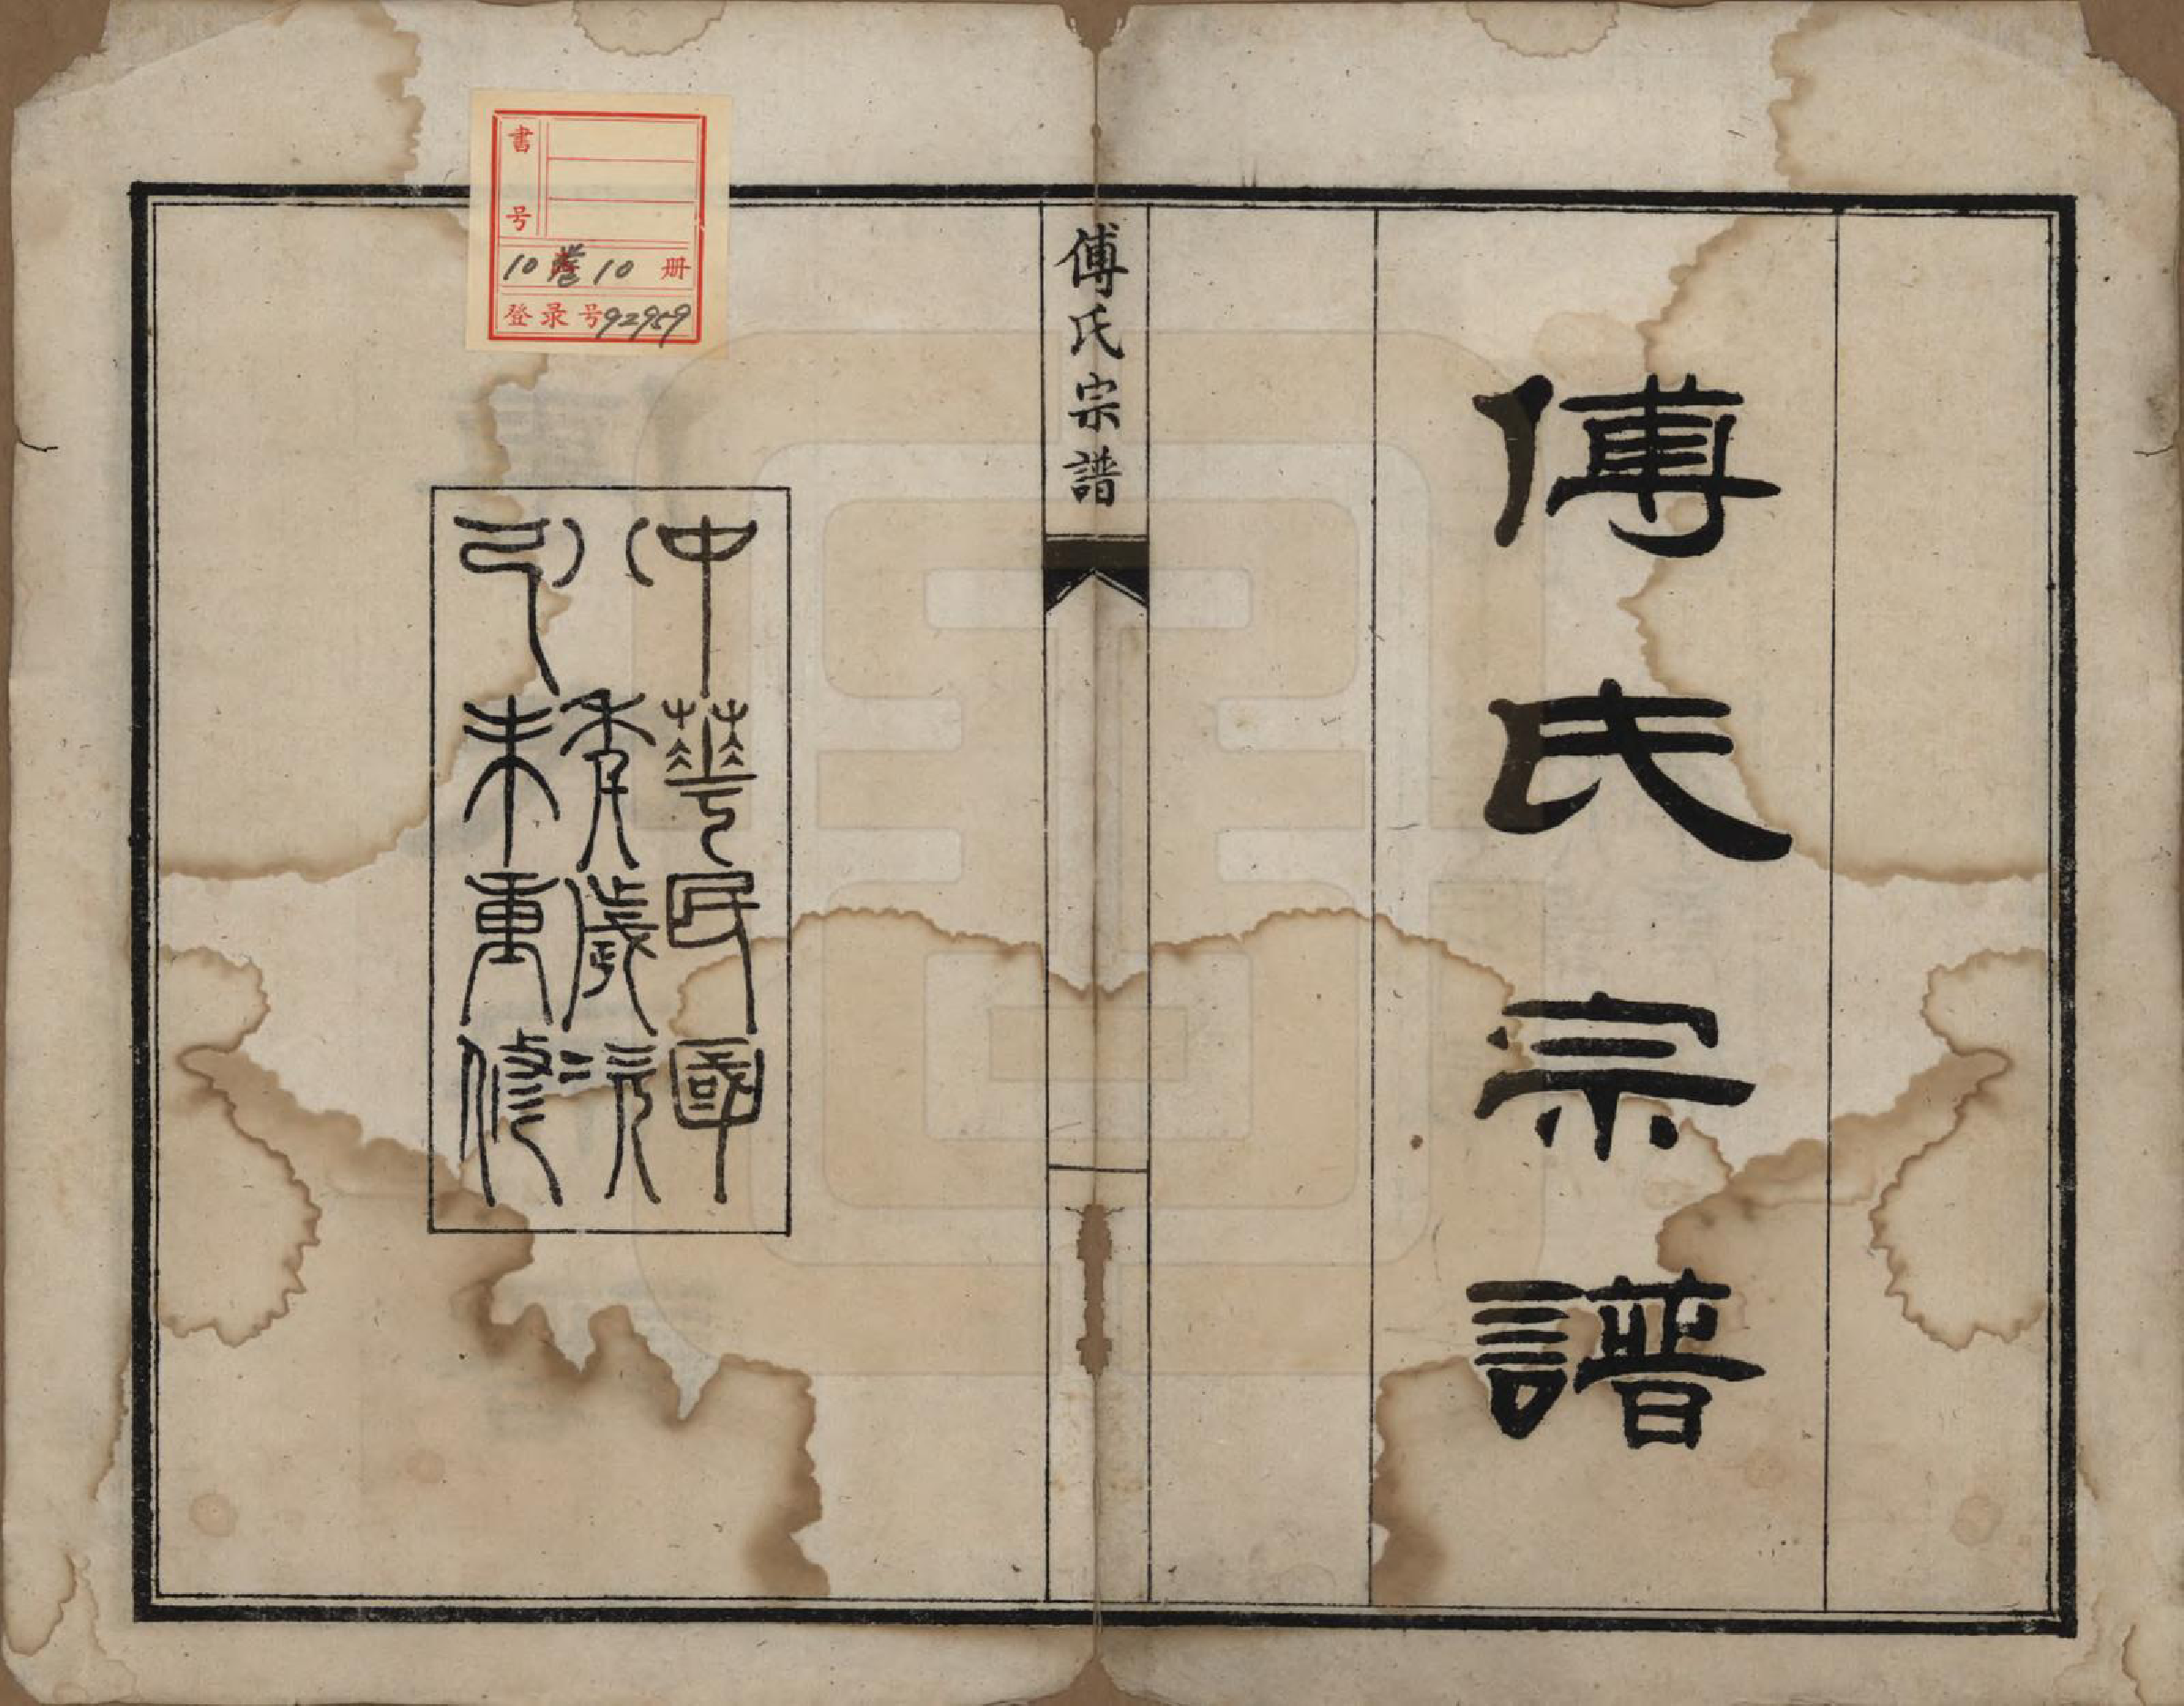 傅氏宗譜
傅氏宗譜
中華民國
八年歲次
己未重修
書号
10卷10册
登录号92959